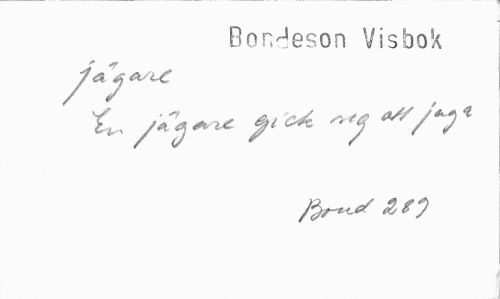 Bondeson Visbok
jägare
En jägare gick sig att jaga
Bond 289